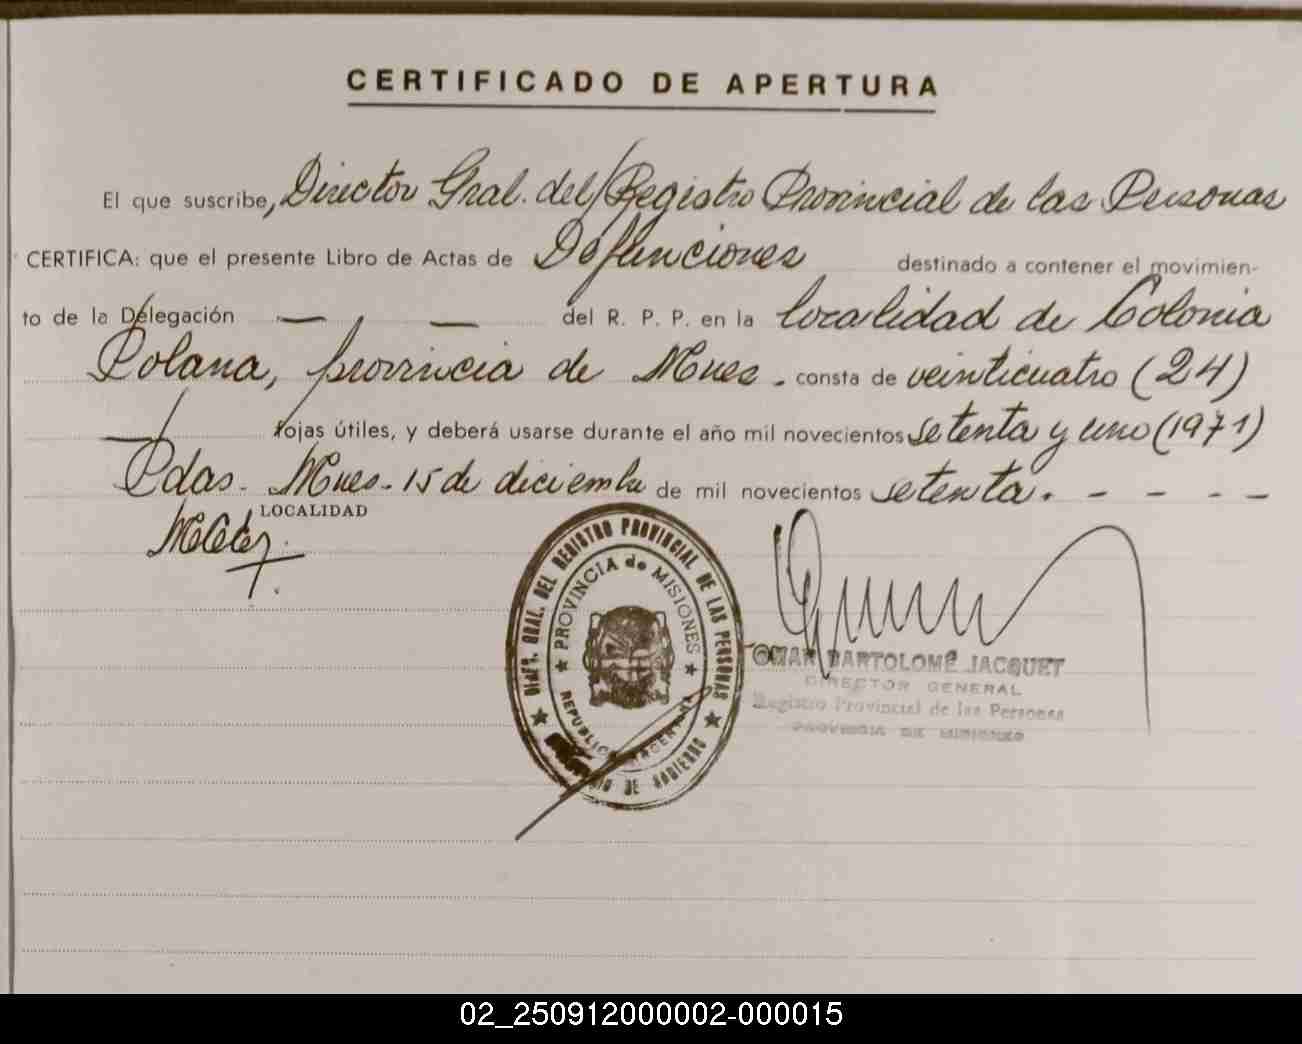 CERTIFICADO DE APERTURA
El que suscribe, Director Gral. del Registro Provincial de las Personas
CERTIFICA: que el presente Libro de Actas de Defunciones destinado a contener el movimien-
to de la Delegación — , — del R. P. P. en la localidad de Colonia
Polana, provincia de Mnes. consta de veinticuatro (24)
fojas útiles, y deberá usarse durante el año mil novecientos setenta y uno (1971)
Pdas. Mnes. 15 de diciembre de mil novecientos setenta. - - - -
LOCALIDAD
DIREC. GRAL. DEL REGISTRO PROVINCIAL DE LAS PERSONAS
PROVINCIA de MISIONES
REPUBLICA ARGENTINA
DE GOBIERNO
OMAR BARTOLOMÉ JACQUET
DIRECTOR GENERAL
Registro Provincial de las Personas
PROVINCIA DE MISIONES
02_250912000002-000015